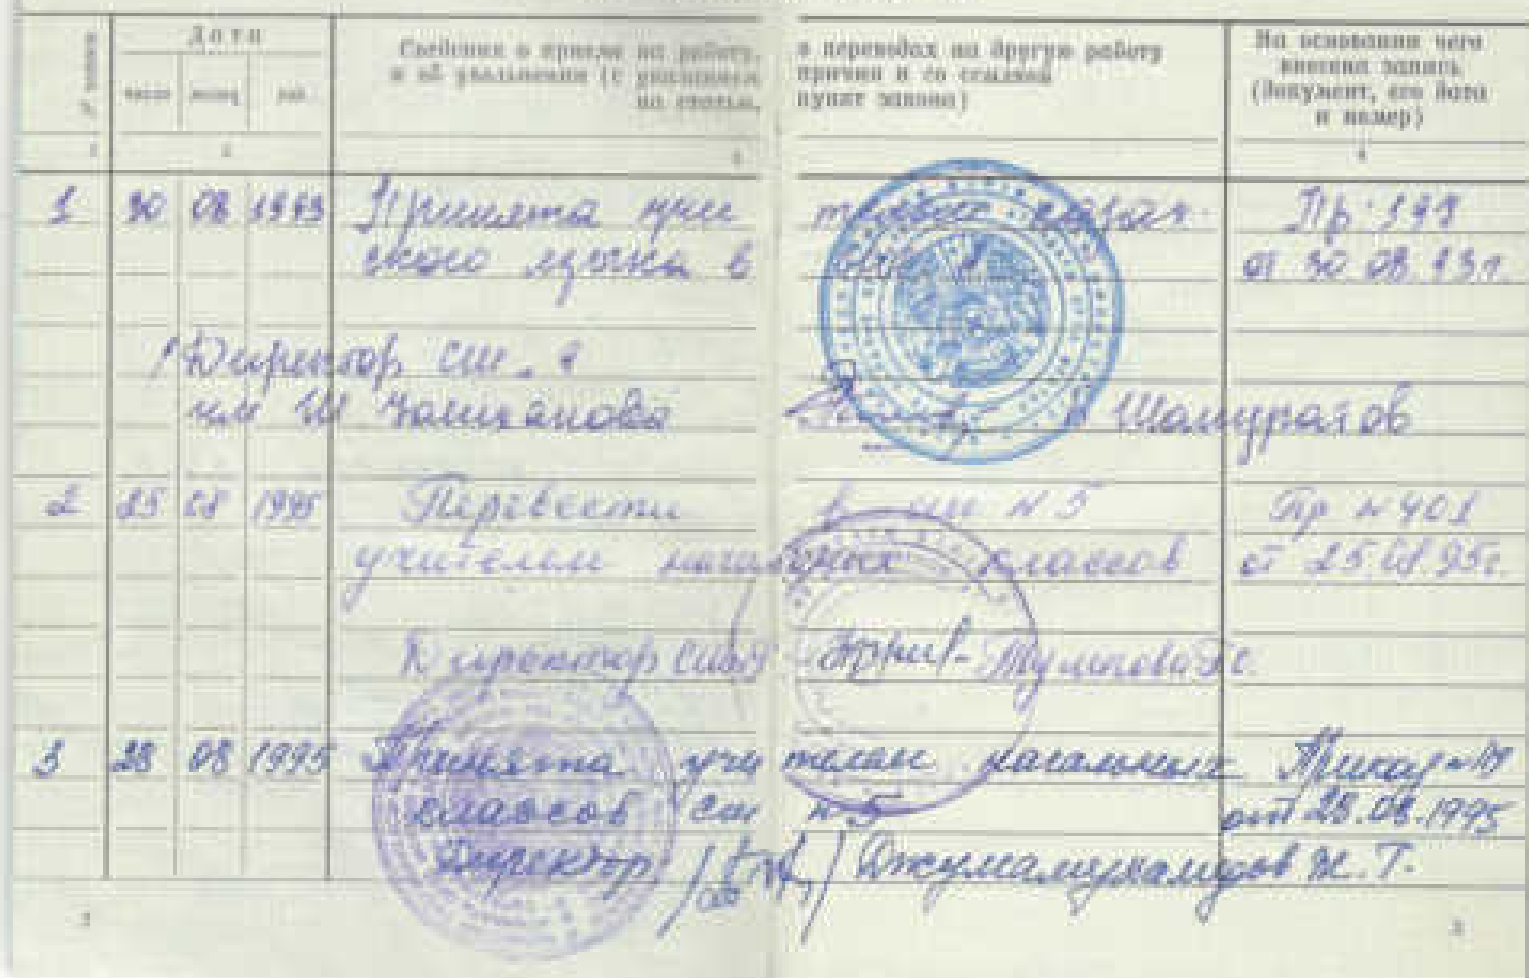 № записи
Дата
число месяц год
Сведения о приеме на работу, о переводах на другую работу
и об увольнении (с указанием причин и со ссылкой
на статью, пункт закона)
На основании чего
внесена запись
(документ, его дата
и номер)
1 2 3 4
1 30 08 1993 Принята учителем казах- Пр
ского языка в от 30.08.93г.
Директор СШ
им Ш Уалиханова Шамуратов
2 25 08 1995 Перевести в сш N 5 Пр N 401
учителем начальных классов от 25.08.95г.
Директор
3 28 08 1995 Принята учителем начальных Приказ
классов сш N 5 от 28.08.1995
Директор Джумамухамедов Ж. Т.
2 3